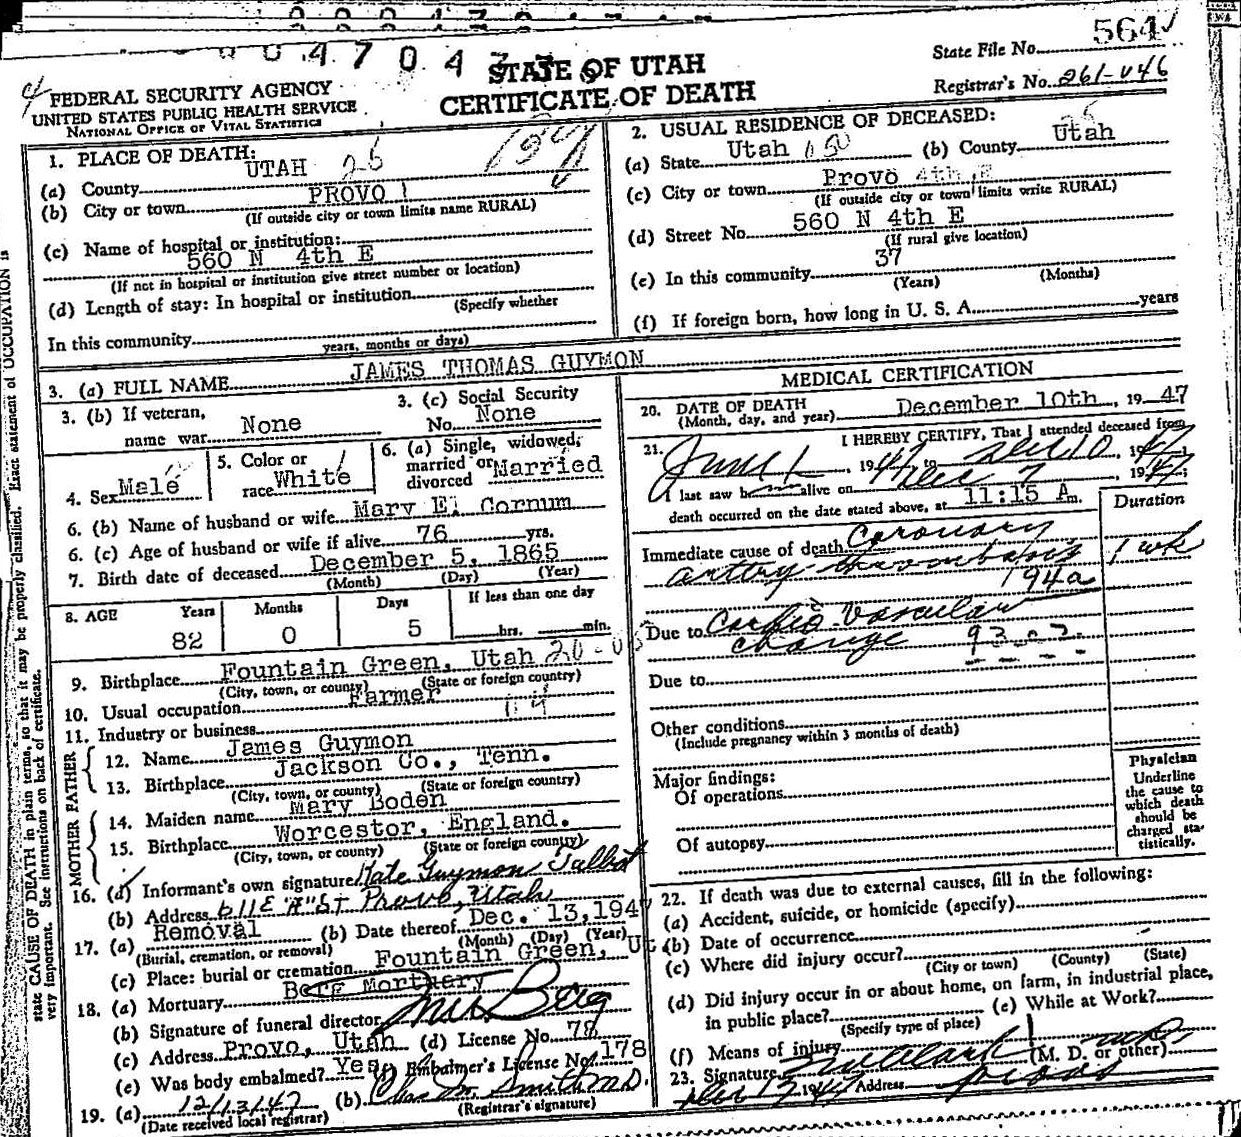 564
State File No.
0 0 4 7 0 4
STATE OF UTAH
CERTIFICATE OF DEATH
Registrar's No. 261-046
FEDERAL SECURITY AGENCY
UNITED STATES PUBLIC HEALTH SERVICE
NATIONAL OFFICE OF VITAL STATISTICS
1. PLACE OF DEATH:
(a) County UTAH 25
(b) City or town PROVO 1
(If outside city or town limits name RURAL)
(c) Name of hospital or institution:
560 N 4th E
(If not in hospital or institution give street number or location)
(d) Length of stay: In hospital or institution
(Specify whether
In this community
years, months or days)
2. USUAL RESIDENCE OF DECEASED:
(a) State Utah (b) County Utah
(c) City or town Provo
(If outside city or town limits write RURAL)
(d) Street No. 560 N 4th E
(If rural give location)
(e) In this community 37
(Years) (Months)
(f) If foreign born, how long in U. S. A. years
3. (a) FULL NAME JAMES THOMAS GUYMON
3. (b) If veteran,
name war None
3. (c) Social Security
No. None
4. Sex Male
5. Color or
race White
6. (a) Single, widowed,
married or
divorced Married
6. (b) Name of husband or wife Mary E. Cornum
6. (c) Age of husband or wife if alive 76 yrs.
7. Birth date of deceased December 5, 1865
(Month) (Day) (Year)
8. AGE Years Months Days If less than one day
82 0 5 hrs. min.
9. Birthplace Fountain Green, Utah
(City, town, or county) (State or foreign country)
10. Usual occupation Farmer
11. Industry or business
FATHER
12. Name James Guymon
13. Birthplace Jackson Co., Tenn.
(City, town, or county) (State or foreign country)
MOTHER
14. Maiden name Mary Boden
15. Birthplace Worcestor, England.
(City, town, or county) (State or foreign country)
16. (a) Informant's own signature Kate Guymon Talbot
(b) Address 611 E "A" St Provo, Utah
17. (a) Removal (b) Date thereof Dec. 13, 1947
(Burial, cremation, or removal) (Month) (Day) (Year)
(c) Place: burial or cremation Fountain Green, Ut
18. (a) Mortuary Berg Mortuary
(b) Signature of funeral director
(c) Address Provo, Utah (d) License No. 78
(e) Was body embalmed? Yes, Embalmer's License No. 178
19. (a) 12/13/47 (b) Chas M. Smith M.D.
(Date received local registrar) (Registrar's signature)
MEDICAL CERTIFICATION
20. DATE OF DEATH
(Month, day, and year) December 10th, 1947
21. I HEREBY CERTIFY, That I attended deceased from
June 1, 1947 to Dec 10, 1947;
I last saw h alive on Dec 7 1947;
death occurred on the date stated above, at 11:15 A m.
Duration
Immediate cause of death Coronary
artery thrombosis 1 wk
194a
Due to Cardio-Vascular
change 93
Due to
Other conditions
(Include pregnancy within 3 months of death)
Major findings:
Of operations
Of autopsy
Physician
Underline
the cause to
which death
should be
charged sta-
tistically.
22. If death was due to external causes, fill in the following:
(a) Accident, suicide, or homicide (specify)
(b) Date of occurrence
(c) Where did injury occur?
(City or town) (County) (State)
(d) Did injury occur in or about home, on farm, in industrial place,
in public place? (e) While at Work?
(Specify type of place)
(f) Means of injury
23. Signature Clark (M. D. or other)
Dec 12 1947 Address Provo
state CAUSE OF DEATH in plain terms, so that it may be properly classified. Exact statement of OCCUPATION is
very important. See instructions on back of certificate.